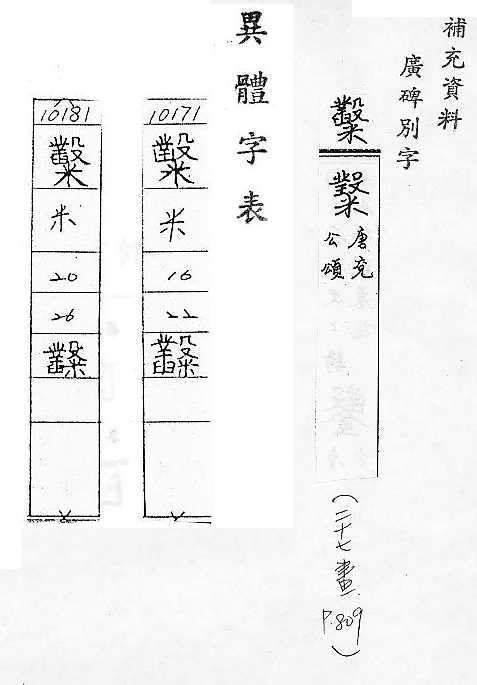 補充資料
廣碑別字
糳
唐兗
公頌
(二十七畫
P.809)
異體字表
10171
米
16
22
10181
糳
米
20
26